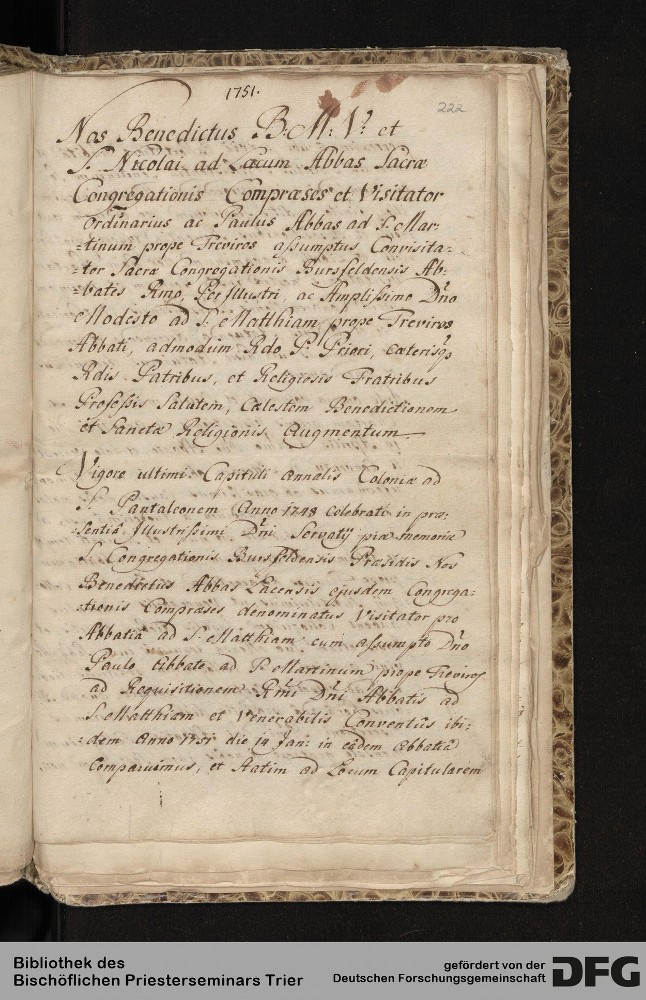 1751.
222
Nos Benedictus B: M: V: et
S. Nicolai ad Lacum Abbas Sacræ
Congregationis Compræses et Visitator
ordinarius ac Paulus Abbas ad S. Mar:
=tinum prope Treviros assumptus Convisita=
=tor Sacræ Congregationis Bursfeldensis Ab:
=batis Rmo, PerIllustri, ac Amplissimo Dno
Modesto ad S. Matthiam prope Treviros
Abbati, admodum Rdo P. Priori, cæterisqꝫ
Rdis Patribus, et Religiosis Fratribus
Professis Salutem, Cælestem Benedictionem
et Sanctæ Religionis Augmentum.
Vigore ultimi Capituli Annalis Coloniæ ad
S. Pantaleonem Anno 1748 celebrati in præ=
=sentia Illustrissimi Dni Servatij piæ memoriæ
S. Congregationis Bursfeldensis Præsidis Nos
Benedictus Abbas Lacensis ejusdem Congrega=
=tionis Compræses denominatus Visitator pro
Abbatia ad S. Matthiam cum assumpto Dno
Paulo Abbate ad S. Martinum prope Treviros
ad Requisitionem Rmi Dni Abbatis ad
S. Matthiam et Venerabilis Conventûs ibi=
=dem Anno 1751 die 14 Jan: in eâdem Abbatiâ
Comparuimus, et statim ad Locum Capitularem
Bibliothek des
Bischöflichen Priesterseminars Trier
gefördert von der
Deutschen Forschungsgemeinschaft
DFG